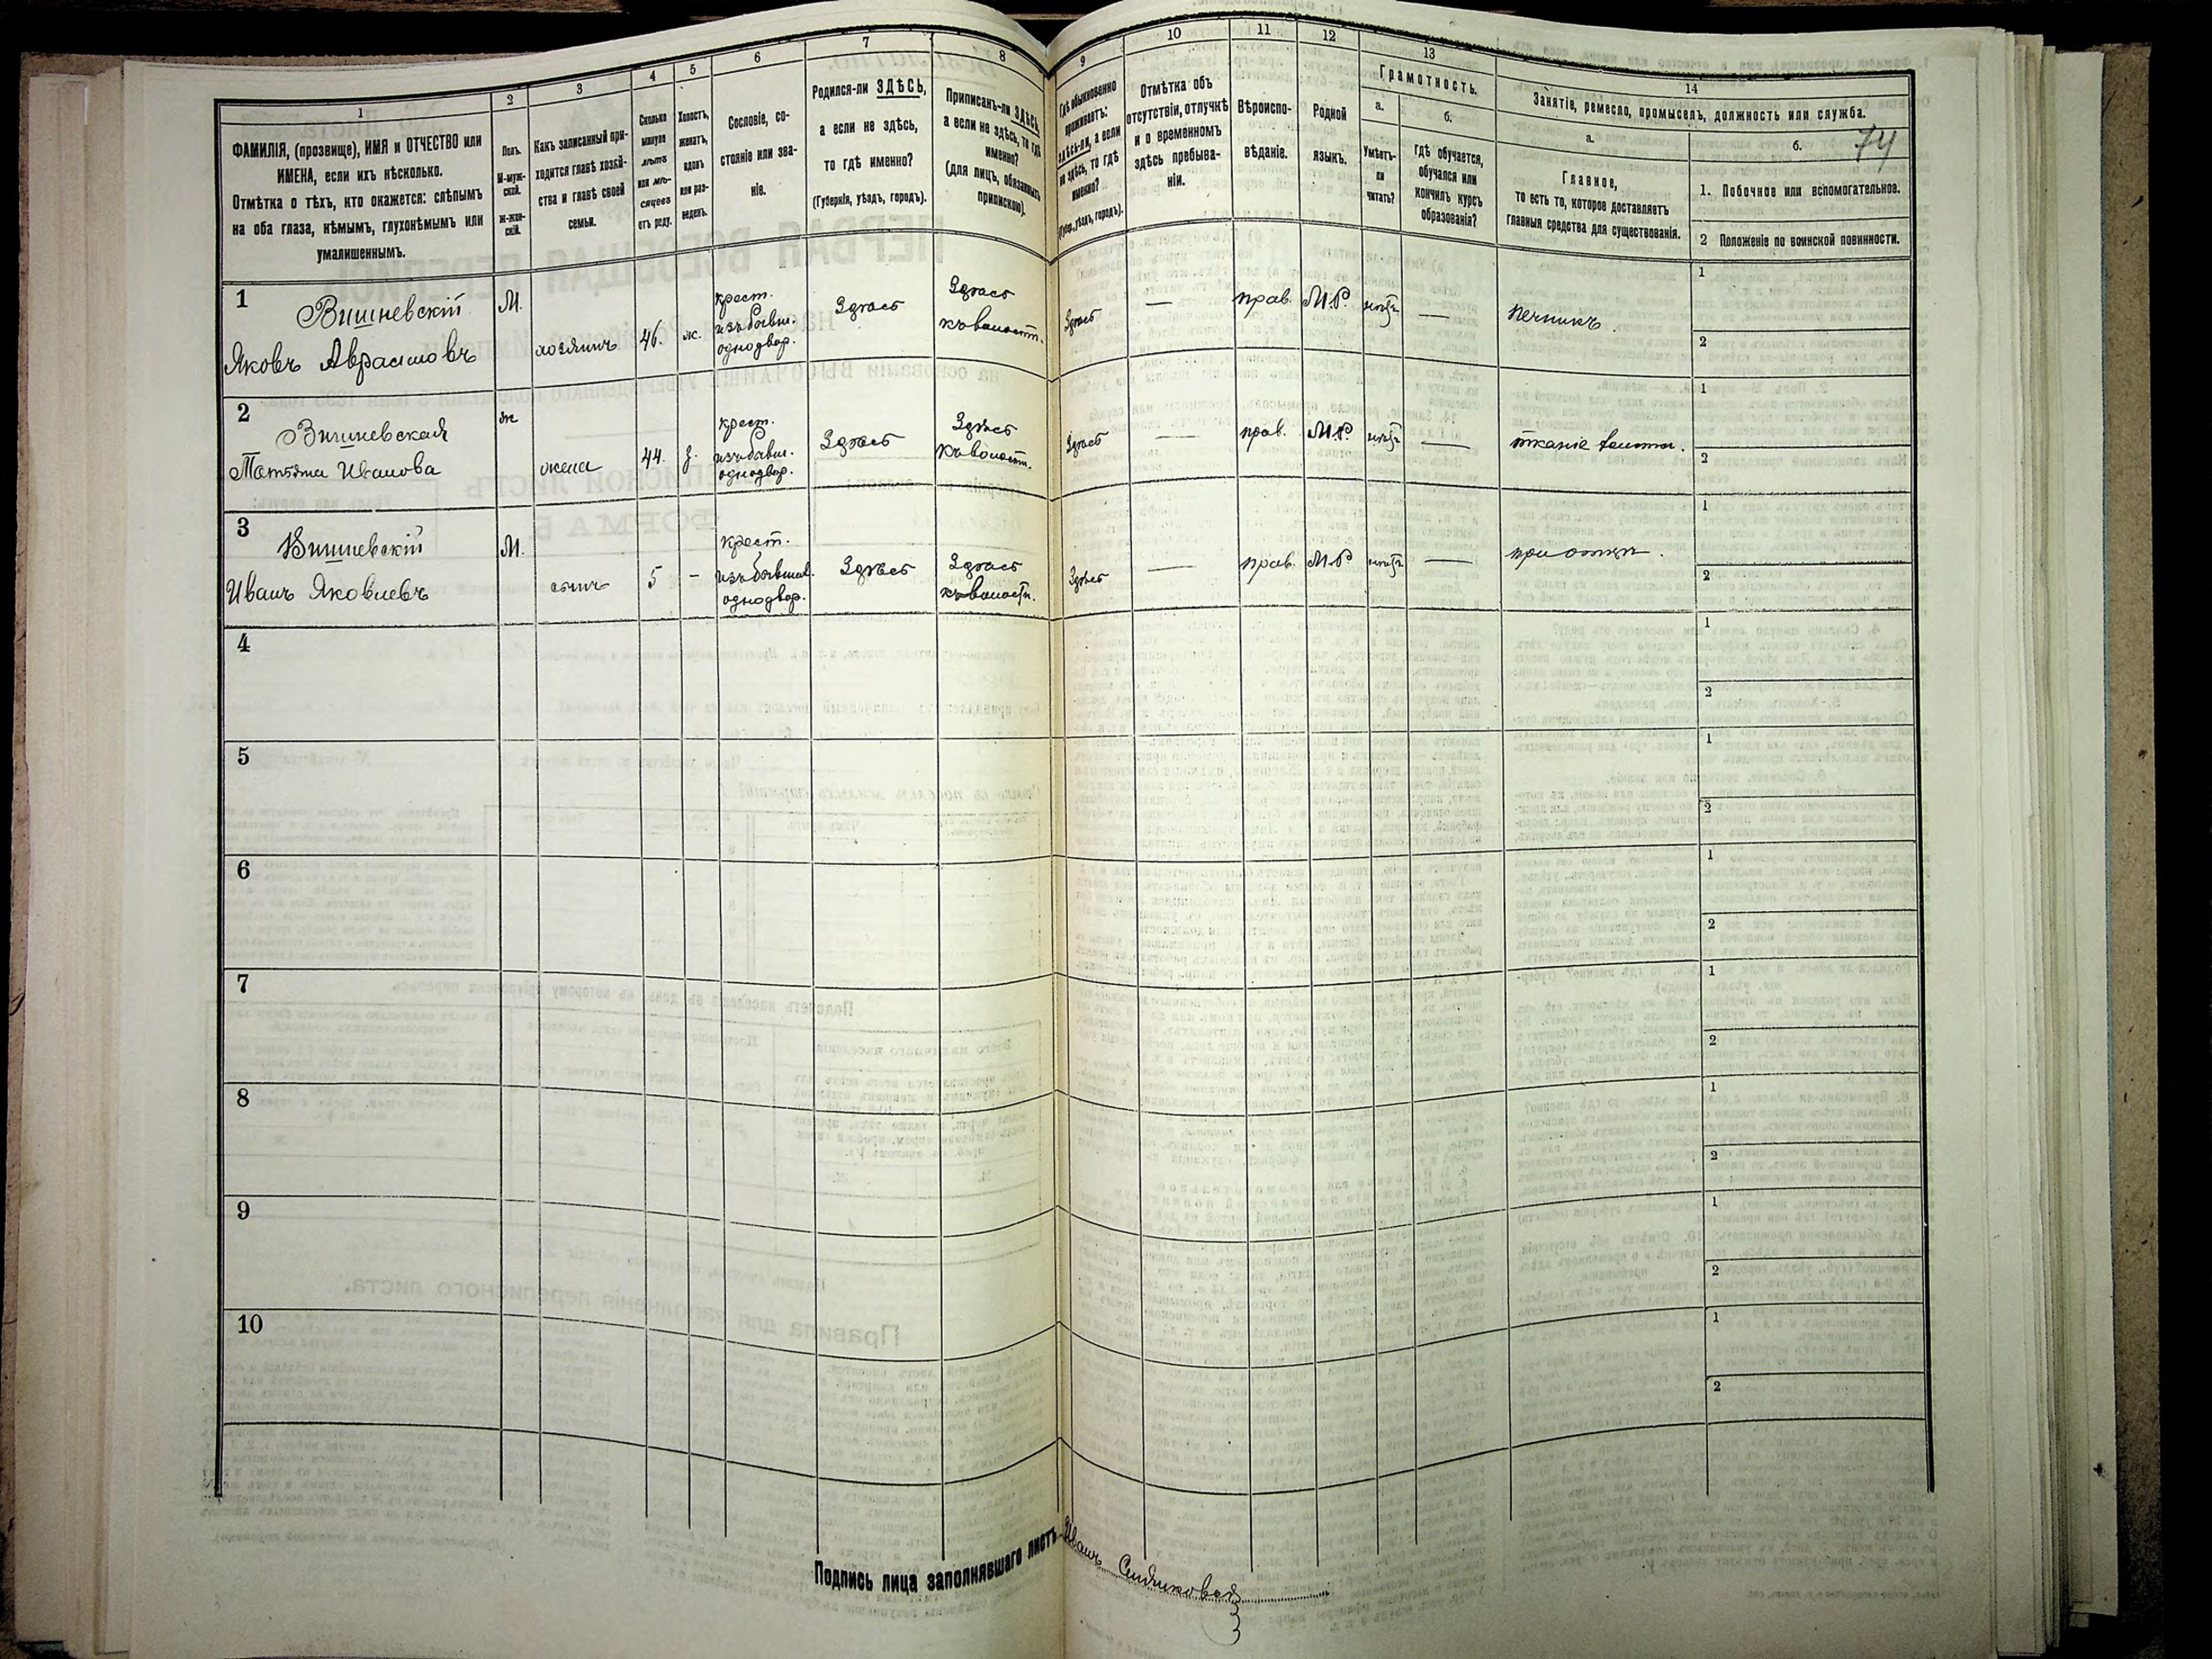 1
ФАМИЛІЯ, (прозвище), ИМЯ и ОТЧЕСТВО или
ИМЕНА, если ихъ нѣсколько.
Отмѣтка о тѣхъ, кто окажется: слѣпымъ
на оба глаза, нѣмымъ, глухонѣмымъ или
умалишеннымъ.
2
Полъ.
М-муж-
ской.
Ж-жен-
скій.
3
Какъ записанный при-
ходится главѣ хозяй-
ства и главѣ своей
семьи.
4
Сколько
минуло
лѣтъ
или мѣ-
сяцевъ
отъ роду.
5
Холостъ,
женатъ,
вдовъ
или раз-
веденъ.
6
Сословіе, со-
стояніе или зва-
ніе.
7
Родился-ли ЗДѢСЬ,
а если не здѣсь,
то гдѣ именно?
(Губернія, уѣздъ, городъ).
8
Приписанъ-ли ЗДѢСЬ,
а если не здѣсь, то гдѣ
именно?
(для лицъ, обязанныхъ
припискою).
9
Гдѣ обыкновенно
проживаетъ:
здѣсь-ли, а если
не здѣсь, то гдѣ
именно?
(Губер., уѣздъ, городъ).
10
Отмѣтка объ
отсутствіи, отлучкѣ
и о временномъ
здѣсь пребыва-
ніи.
11
Вѣроиспо-
вѣданіе.
12
Родной
языкъ.
13
Грамотность.
а.
Умѣетъ-
ли
читать?
б.
гдѣ обучается,
обучался или
кончилъ курсъ
образованія?
14
Занятіе, ремесло, промыселъ, должность или служба.
а.
Главное,
то есть то, которое доставляетъ
главныя средства для существованія.
б.
74
1. Побочное или вспомогательное.
2 Положеніе по воинской повинности.
1
Вишневскій
Яковъ Аврамовъ
М.
хозяинъ
46.
ж.
крест.
изъ бывш.
однодвор.
Здѣсь
Здѣсь
къ волост.
Здѣсь
—
прав.
М.Р.
нѣтъ
—
печникъ.
1
2
2
Вишневская
Татьяна Иванова
ж
жена
44.
з.
крест.
изъ бывш.
однодвор.
Здѣсь
Здѣсь
къ волост.
Здѣсь
—
прав.
М.Р.
нѣтъ
—
тканіе холста.
1
2
3
Вишневскій
Иванъ Яковлевъ
М.
сынъ
5
-
крест.
изъ бывш.
однодвор.
Здѣсь
Здѣсь
къ волост.
Здѣсь
—
прав.
М.Р
нѣтъ
—
при отцѣ.
1
2
4
1
2
5
1
2
6
1
2
7
1
2
8
1
2
9
1
2
10
1
2
Подпись лица заполнявшаго листъ Иванъ